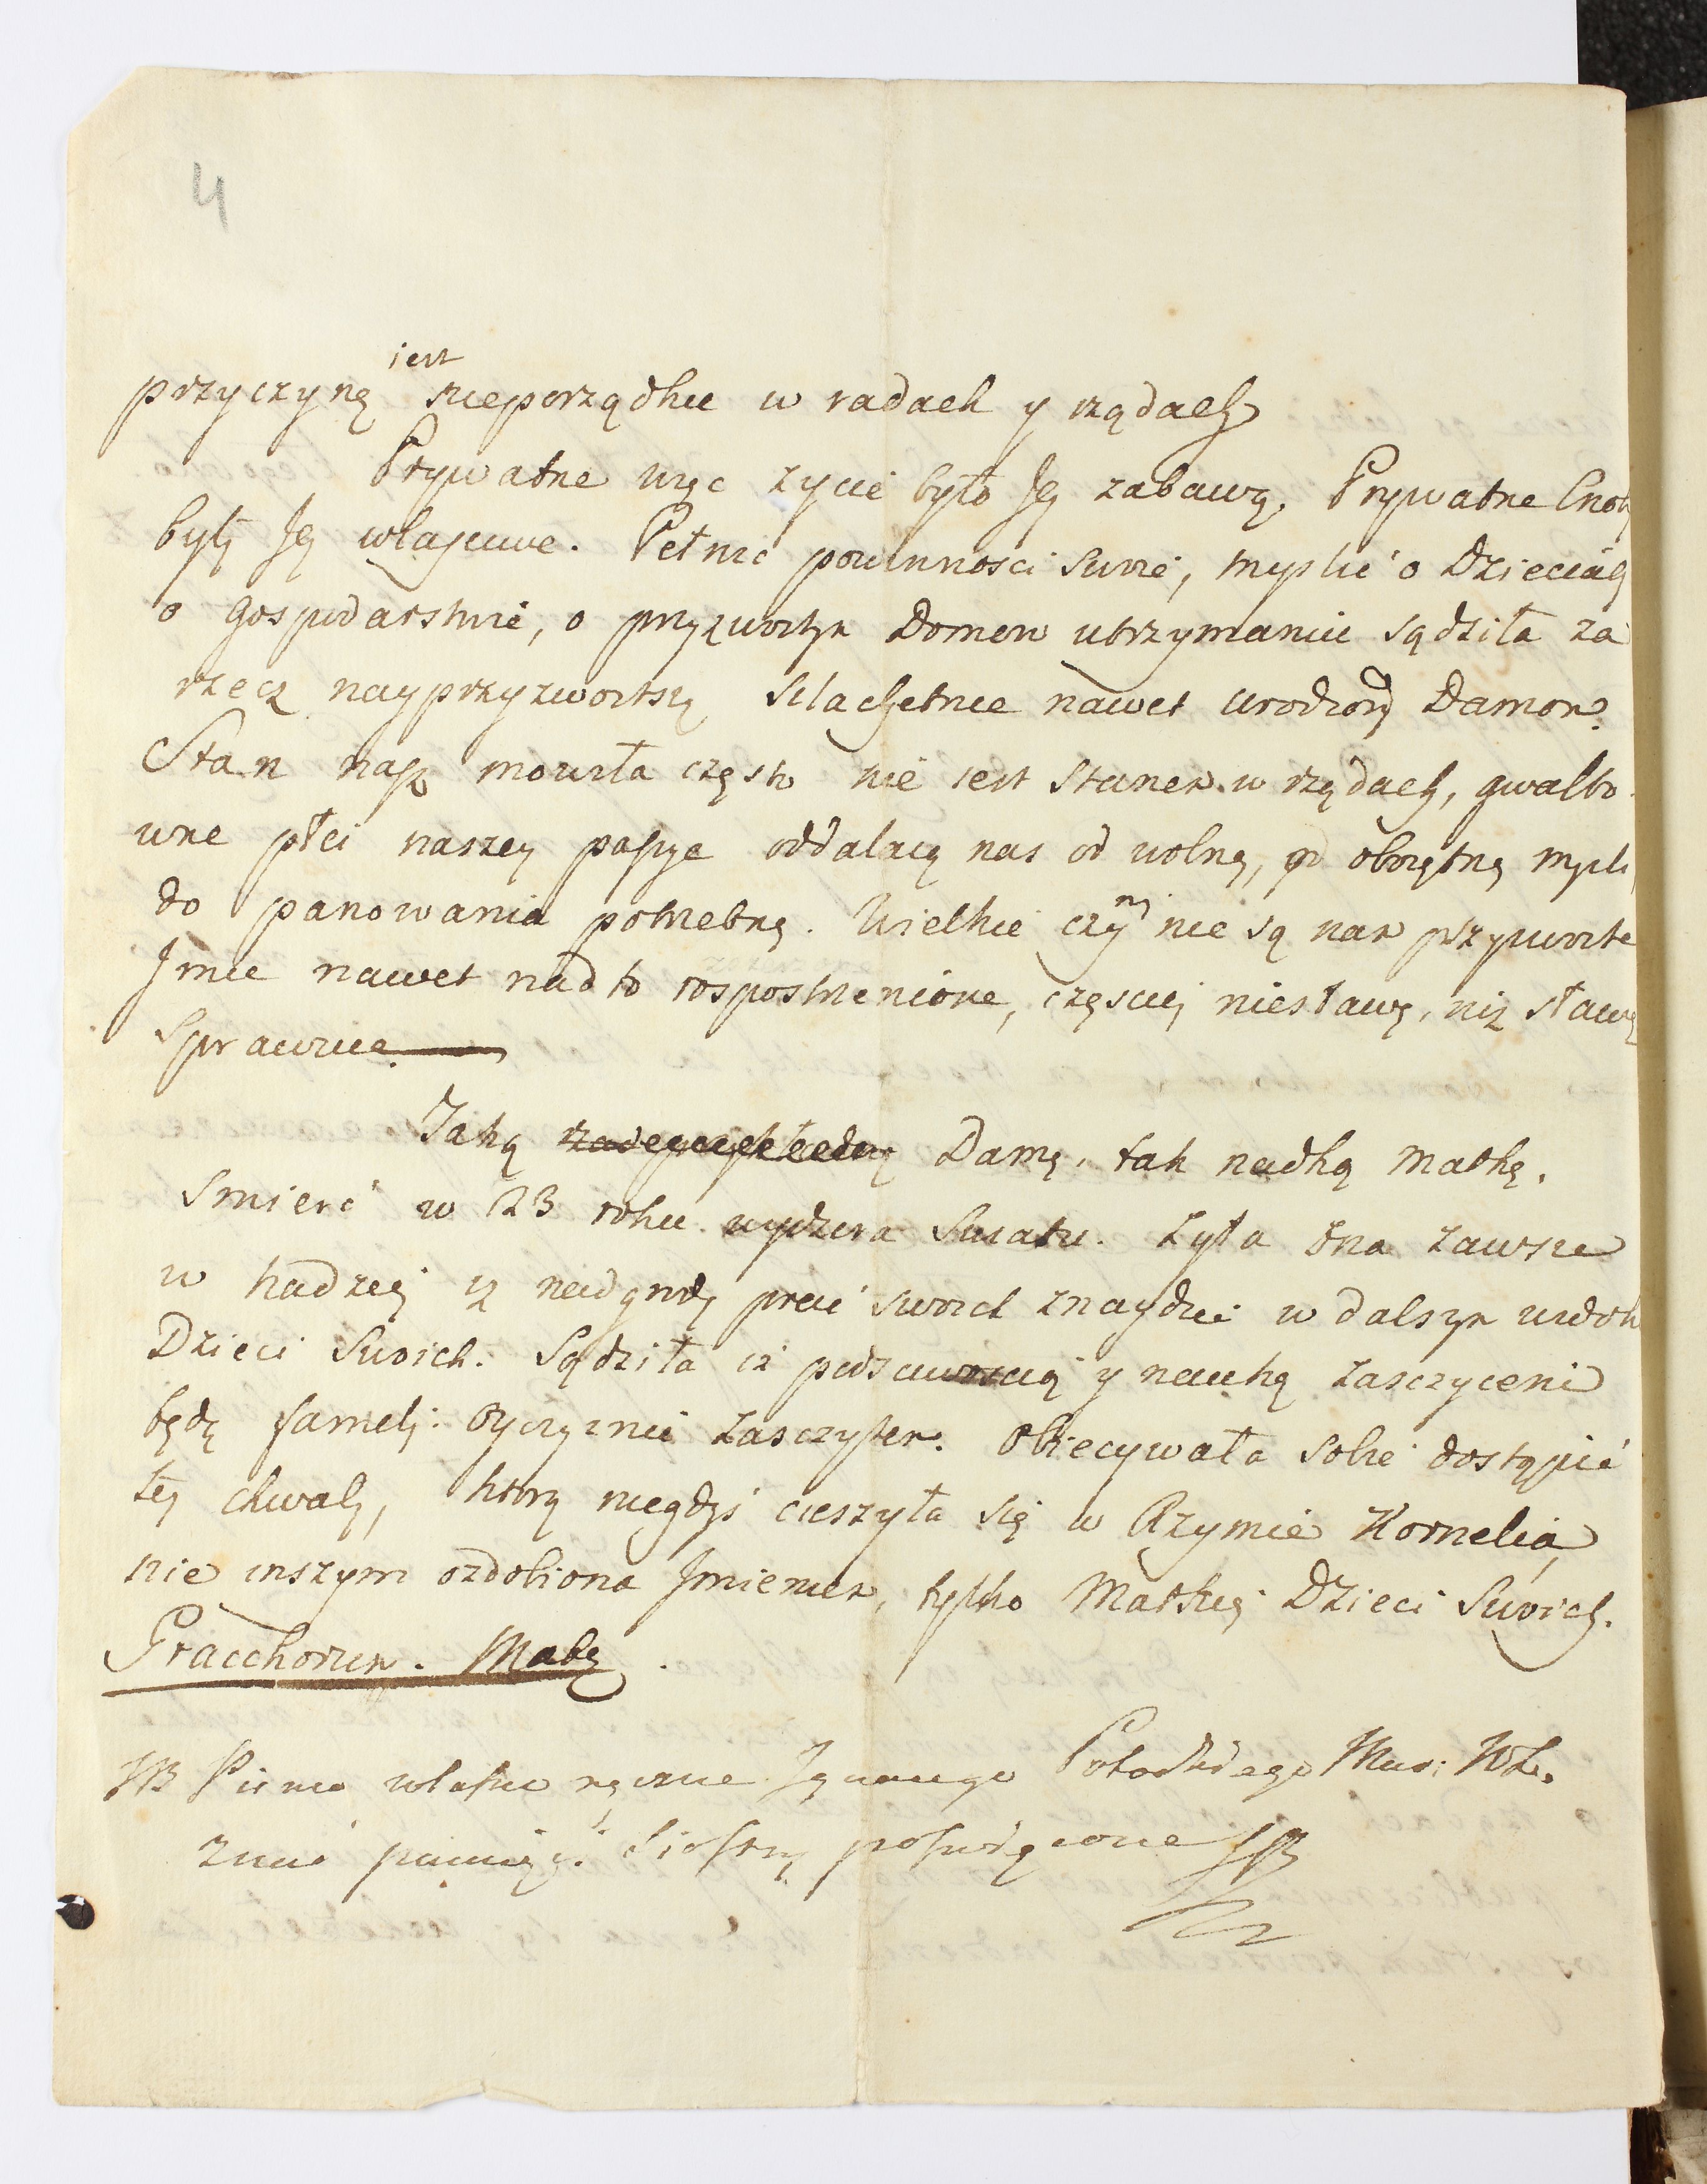 4
jest
przyczyną nieporządku w radach y rządach
Prywatne więc zycie było Jey zabawą. Prywatne Cnoty
były Jey właściwe. Pełnić powinnosci swoie, myslić o Dzieciach
o gospodarstwie, o przyzwoitym Domem utrzymaniu sądziła za
rzecz nayprzyzwoitszą slachetnie nawet urodzoney Damom.
Stan nasz mowiła często nie iest stanem w rządach, gwałto
wne płci naszey passye oddalaią nas od wolney, od oboiętney mysli
do panowania potrzebney. Wielkie czyny nie są nam przyzwoite
Jmie nawet nadto rospostrzenione, częsciej niesławę, niz sławę
sprawuie.
Taką Damę, tak rzadką matkę,
smierć w 23 roku wydziera swiatu. Zyła ona zawsze
w nadziei iz nadgrodę prac swoich znaydzie w dalszym widoku
Dzieci swoich. Sądziła iz poczciwoscią y nauką zasczyceni
będą familij: oyczyznie zasczytem. Obiecywała sobie dostąpić
tey chwały, ktorą niegdys cieszyła się w Rzymie Kornelia
nie inszym ozdobiona Jmieniem, tylko Matki Dzieci swoich.
Gracchorum. Mater.
NB Pismo własno ręczne Ignacego Potockiego Mar: WL.
pamięci Siostry poświęcone